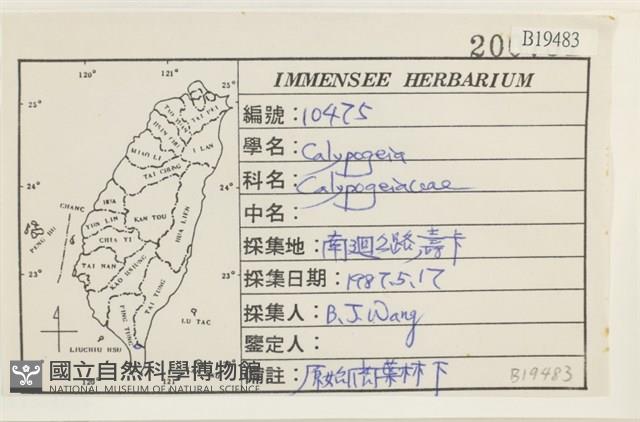 B19483
IMMENSEE HERBARIUM
編號：10475
學名：Calypogeia
科名：Calypogeiaceae
中名：
採集地：南迴公路 壽卡
採集日期：1987.5.17
採集人：B.J. Wang
鑒定人：
備註：原始闊葉林下
B19483
120° 121° 25°
25°
TAI PEI
I LAN
MIAO LI
TAI CHUNG
24° 24°
CHANG HUA
PENG HU
YUN LIN
NAN TOU
HUA LIEN
CHIA YI
TAI NAN
KAO HSIUNG
23° 23°
TAI TUNG
PING TUNG
LU TAO
LIUCHIU HSU
120° 121°
國立自然科學博物館
NATIONAL MUSEUM OF NATURAL SCIENCE